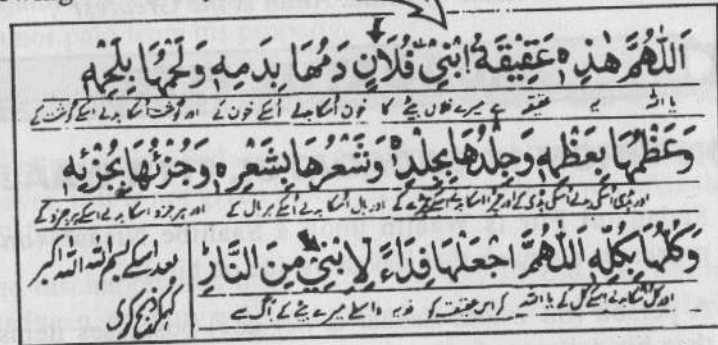 اَللّٰهُمَّ هٰذِهٖ عَقِيْقَةُ ابْنِيْ فُلَانٍ دَمُهَا بِدَمِهٖ وَلَحْمُهَا بِلَحْمِهٖ
یا اللہ یہ عقیقہ ہے میرے فلاں بیٹے کا خون اسکا بدلے اُسکے خون کے اور گوشت اُسکا بدلے اُسکے گوشت کے
وَعَظْمُهَا بِعَظْمِهٖ وَجِلْدُهَا بِجِلْدِهٖ وَشَعْرُهَا بِشَعْرِهٖ وَجُزْئُهَا بِجُزْئِهٖ
اور ہڈی اسکی بدلے اُسکی ہڈی کے اور چمڑا اسکا بدلے اُسکے چمڑے کے اور بال اُسکا بدلے اُسکے ہر بال کے اور ہر جزو اسکا بدلے اُسکے ہر جزو کے
وَكُلُّهَا بِكُلِّهٖ اَللّٰهُمَّ اجْعَلْهَا فِدَاءً لِابْنِيْ مِنَ النَّارِ
اور کل اسکا بدلے اُسکے کل کے یا اللہ کر اس عقیقہ کو فدیہ واسطے میرے بیٹے کے آگ سے
بعد اسکے بسم اللہ اللہ اکبر
کہہ کر ذبح کری